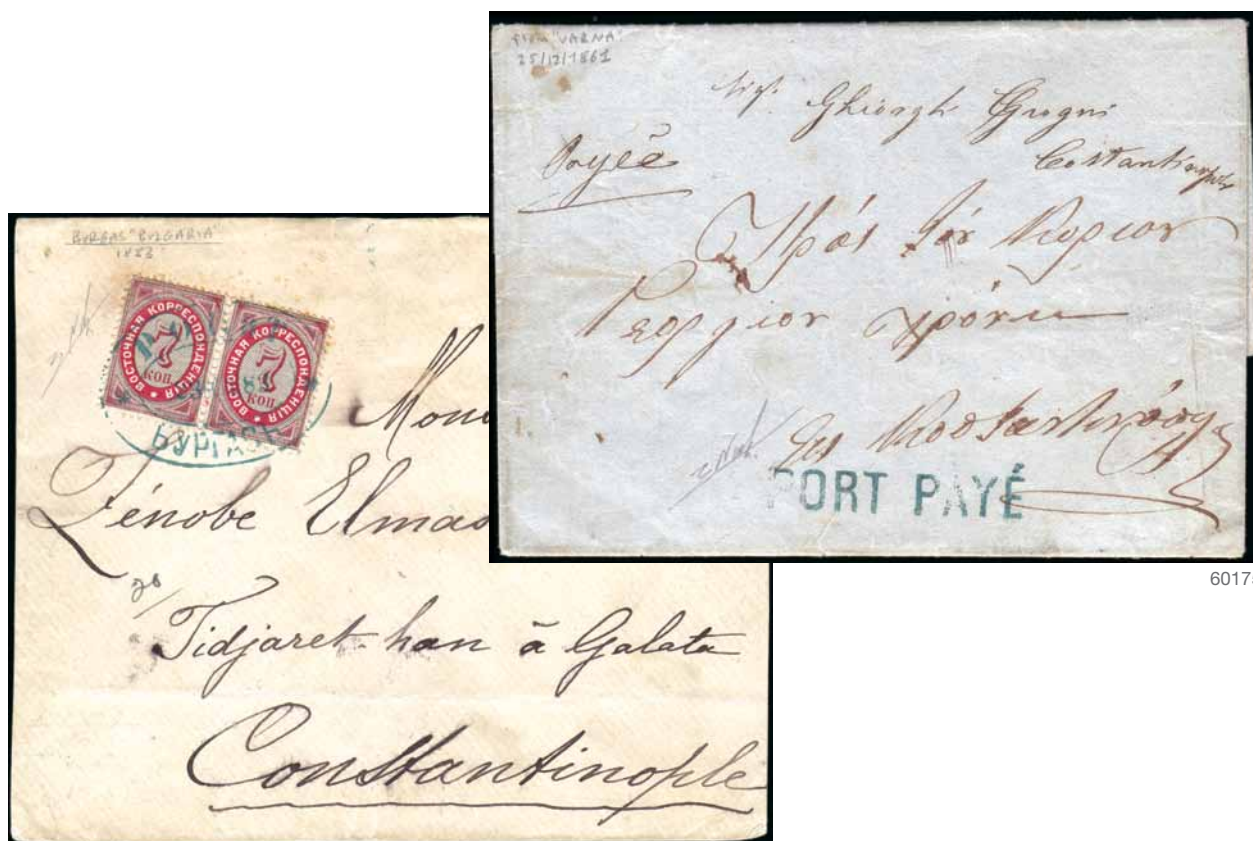 from "VARNA"
25/12/1861
Sigr. Ghiorghi
Payée
Costantinopoli
Πρὸς τὸν Κύριον
Γεώργιον
PORT PAYÉ
6017
BURGAS "BULGARIA"
1883
ВОСТОЧНАЯ КОРРЕСПОНДЕНЦІЯ
7
КОП.
ВОСТОЧНАЯ КОРРЕСПОНДЕНЦІЯ
7
КОП.
БУРГАСЪ
Mons
Zénobe Elmas
Tidjaret han à Galata
Constantinople